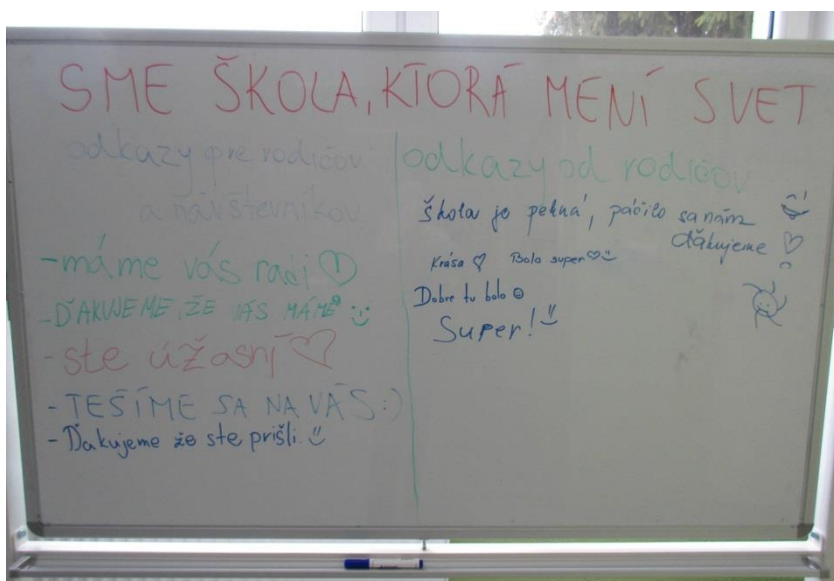 SME ŠKOLA, KTORÁ MENÍ SVET
odkazy pre rodičov
a návštevníkov
-máme vás radi
-ĎAKUJEME, ŽE VÁS MÁME
-ste úžasní
- TEŠÍME SA NA VÁS :)
- Ďakujeme že ste prišli.
odkazy od rodičov
škola je pekná, páčilo sa nám
ďakujeme
Krása Bolo super
Dobre tu bolo
Super!